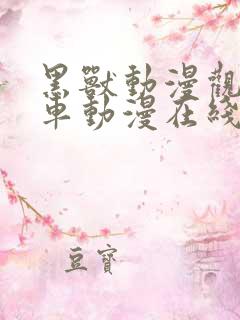 黑獸動漫觀
車動漫在綫
豆寶